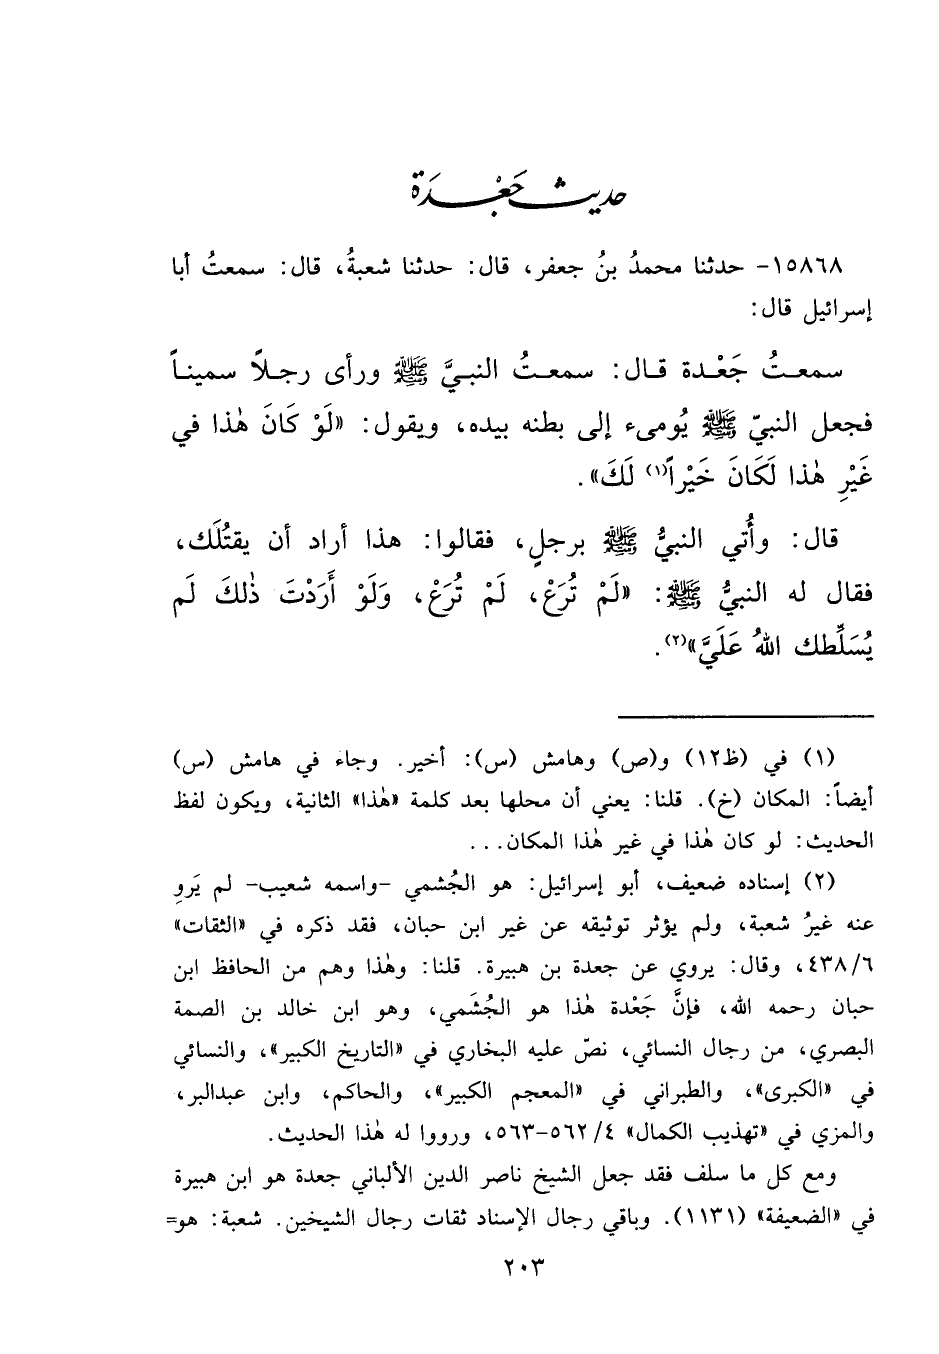 حديث جَعْدَة
١٥٨٦٨- حدثنا محمدُ بنُ جعفر، قال: حدثنا شعبةُ، قال: سمعتُ أبا
إسرائيل قال:
سمعتُ جَعْدة قال: سمعتُ النبيَّ ﷺ ورأى رجلاً سميناً
فجعل النبيّ ﷺ يُومىء إلى بطنه بيده، ويقول: «لَوْ كَانَ هٰذا في
غَيْرِ هٰذا لَكَانَ خَيْراً(١) لَكَ».
قال: وأُتي النبيُّ ﷺ برجلٍ، فقالوا: هذا أراد أن يقتُلَك،
فقال له النبيُّ ﷺ: «لَمْ تُرَعْ، لَمْ تُرَعْ، وَلَوْ أَرَدْتَ ذٰلكَ لَم
يُسَلِّطك اللهُ عَلَيَّ»(٢).
(١) في (ظ١٢) و(ص) وهامش (س): أخير. وجاء في هامش (س)
أيضاً: المكان (خ). قلنا: يعني أن محلها بعد كلمة «هٰذا» الثانية، ويكون لفظ
الحديث: لو كان هٰذا في غير هٰذا المكان...
(٢) إسناده ضعيف، أبو إسرائيل: هو الجُشمي -واسمه شعيب- لم يَروِ
عنه غيرُ شعبة، ولم يؤثر توثيقه عن غير ابن حبان، فقد ذكره في «الثقات»
٤٣٨/٦، وقال: يروي عن جعدة بن هبيرة. قلنا: وهٰذا وهم من الحافظ ابن
حبان رحمه الله، فإنَّ جَعْدة هٰذا هو الجُشَمي، وهو ابن خالد بن الصمة
البصري، من رجال النسائي، نصّ عليه البخاري في «التاريخ الكبير»، والنسائي
في «الكبرى»، والطبراني في «المعجم الكبير»، والحاكم، وابن عبدالبر،
والمزي في «تهذيب الكمال» ٥٦٢/٤-٥٦٣، ورووا له هٰذا الحديث.
ومع كل ما سلف فقد جعل الشيخ ناصر الدين الألباني جعدة هو ابن هبيرة
في «الضعيفة» (١١٣١). وباقي رجال الإسناد ثقات رجال الشيخين. شعبة: هو=
٢٠٣